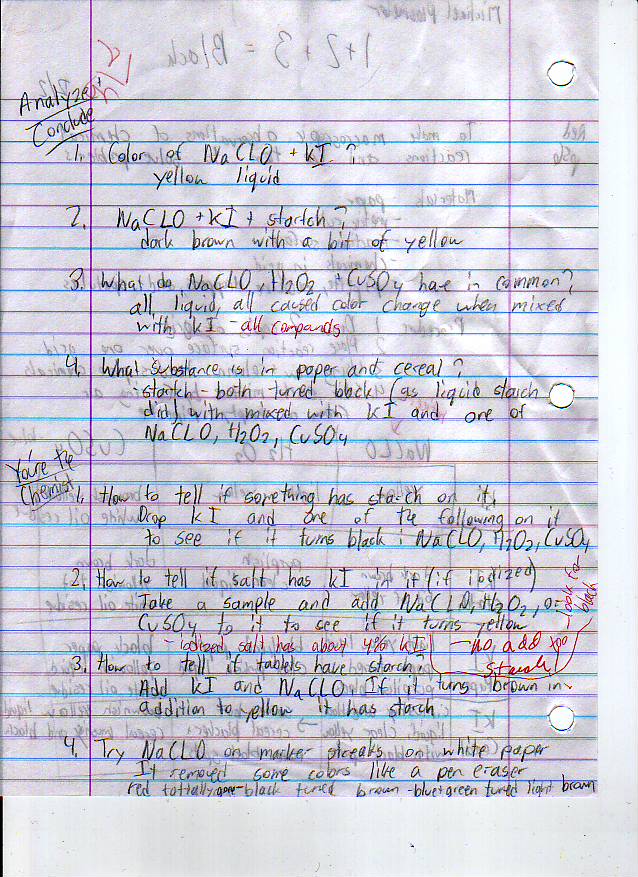 Analyze +
Conclude
1. Color of NaClO + kI ?
yellow liquid
2. NaClO + kI + startch?
dark brown with a bit of yellow
3. What do NaClO, H2O2 + CuSO4 have in common?
all liquid, all caused color change when mixed
with kI - all compands
4. What substance is in paper and cereal?
startch - both turned black (as liquid starch
did) with mixed with kI and one of
NaClO, H2O2, CuSO4
You're the
Chemist
1. How to tell if something has starch on it,
Drop kI and one of the following on it
to see if it turns black : NaClO, H2O2, CuSO4
2. How to tell if salt has kI in it (if iodized)
Take a sample and add NaClO, H2O2, or
CuSO4 to it to see if it turns yellow
- Iodized salt has about 4% kI
- no, add too
starch
- look for
black
3. How to tell if tablets have starch?
Add kI and NaClO. If it turns brown in
addition to yellow it has starch
4. Try NaClO on marker streaks on white paper
It removed some colors like a pen eraser
red tottally gone - black turned brown - blue+green turned light brown